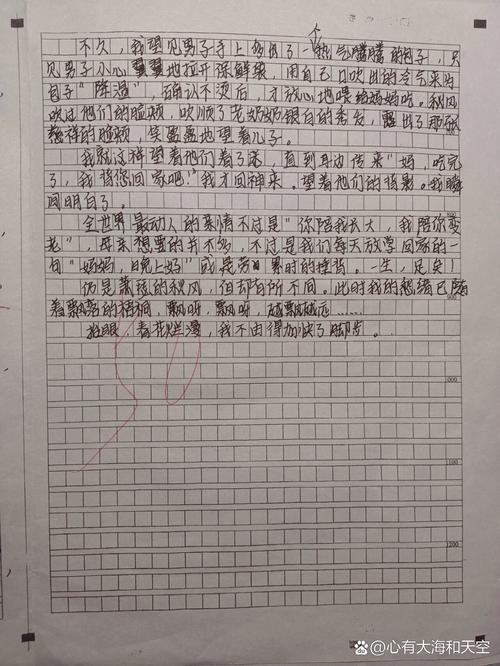 不久，我望见男子手上多出了一个热气腾腾的包子，只
见男子小心翼翼地拉开保鲜袋，用自己口吹出的冷气来为
包子“降温”，确认不烫后，才放心地喂给妈妈吃。秋风
吹过他们的脸颊，吹顺了老奶奶银白的秀发，露出了那张
慈祥的脸颊，笑盈盈地望着儿子。
我就这样望着他们着了迷，直到耳边传来“妈，吃完
了，我带您回家吧！”我才回神来。望着他们的背影。我瞬
间明白了。
全世界最动人的亲情不过是“你陪我长大，我陪你变
老”，母亲想要的并不多，不过是我们每天放学回家的一
句“妈妈，晚上好”或是劳累时的捶背。一生，足矣！
仍是萧瑟的秋风，但却有所不同。此时我的愁绪已随
着飘落的梧桐，飘呀，飘呀，越飘越远……
抬眼，春花烂漫，我不由得加快了脚步。
900
1000
1100
1200
心有大海和天空